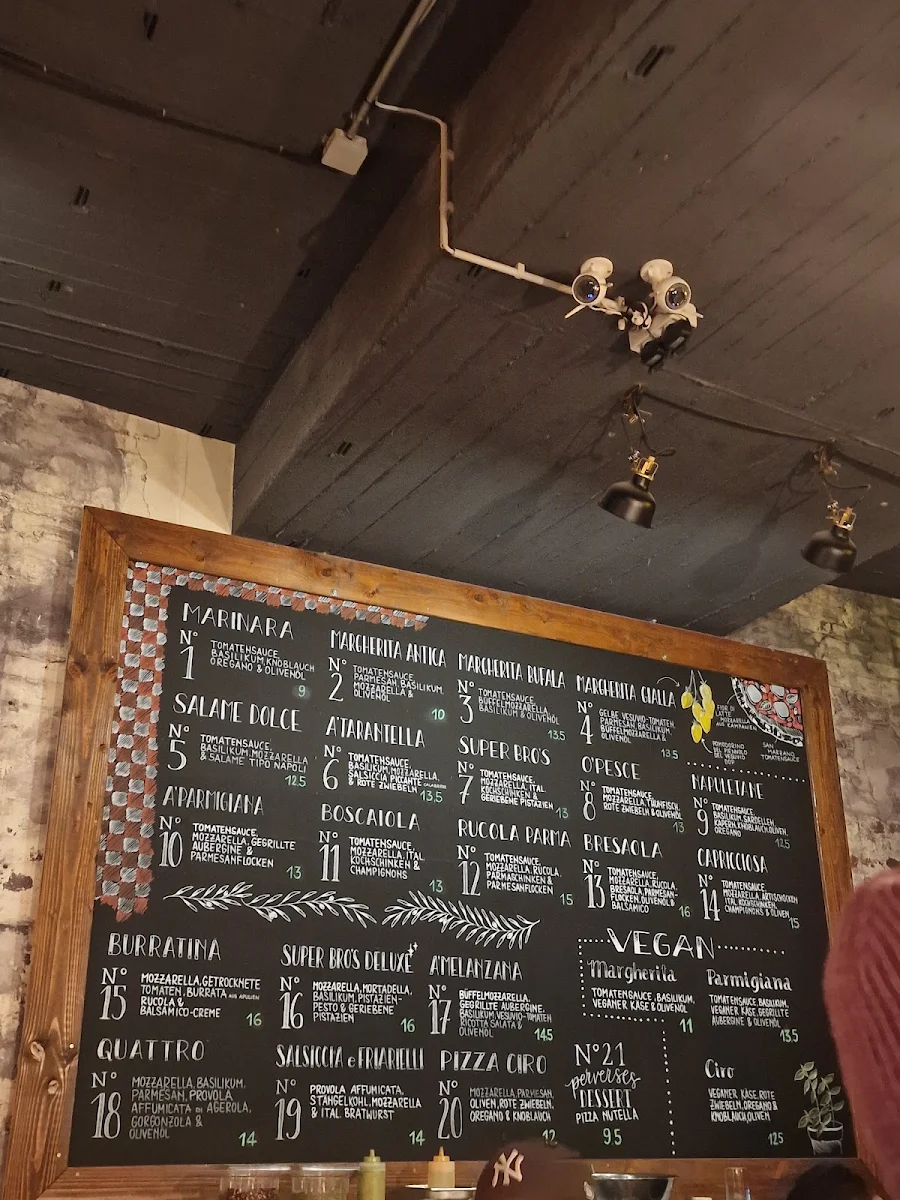 MARINARA
N° 1
TOMATENSAUCE
BASILIKUM, KNOBLAUCH
OREGANO & OLIVENÖL
9
MARGHERITA ANTICA
N° 2
TOMATENSAUCE
PARMESAN, BASILIKUM,
MOZZARELLA &
OLIVENÖL
10
MARGHERITA BUFALA
N° 3
TOMATENSAUCE,
BÜFFELMOZZARELLA,
BASILIKUM & OLIVENÖL
13.5
MARGHERITA GIALLA
N° 4
GELBE VESUVIO-TOMATEN
PARMESAN, BASILIKUM,
BÜFFELMOZZARELLA &
OLIVENÖL
13.5
FIOR DI
LATTE
MOZZARELLA
AUS KAMPANIEN
POMODORINO
DEL PIENNOLO
DEL VESUVIO
DOP
SAN
MARZANO
TOMATENSAUCE
SALAME DOLCE
N° 5
TOMATENSAUCE,
BASILIKUM, MOZZARELLA
& SALAME TIPO NAPOLI
12.5
A'TARANTELLA
N° 6
TOMATENSAUCE,
BASILIKUM, MOZZARELLA,
SALSICCIA PICCANTE
& ROTE ZWIEBELN
13,5
SUPER BRO'S
N° 7
TOMATENSAUCE,
MOZZARELLA, ITAL.
KOCHSCHINKEN &
GERIEBENE PISTAZIEN
13
O'PESCE
N° 8
TOMATENSAUCE,
MOZZARELLA, THUNFISCH,
ROTE ZWIEBELN & OLIVENÖL
13
NAPULETANE
N° 9
TOMATENSAUCE,
BASILIKUM, SARDELLEN,
KAPERN, KNOBLAUCH, OLIVEN,
OREGANO
12.5
A'PARMIGIANA
N° 10
TOMATENSAUCE,
MOZZARELLA, GEGRILLTE
AUBERGINE &
PARMESANFLOCKEN
13
BOSCAIOLA
N° 11
TOMATENSAUCE,
MOZZARELLA, ITAL.
KOCHSCHINKEN &
CHAMPIGNONS
13
RUCOLA PARMA
N° 12
TOMATENSAUCE,
MOZZARELLA, RUCOLA,
PARMASCHINKEN &
PARMESANFLOCKEN
15
BRESAOLA
N° 13
TOMATENSAUCE,
MOZZARELLA, RUCOLA,
BRESAOLA, PARMESAN-
FLOCKEN, OLIVENÖL &
BALSAMICO
16
CAPRICCIOSA
N° 14
TOMATENSAUCE,
MOZZARELLA, ARTISCHOCKEN
ITAL. KOCHSCHINKEN,
CHAMPIGNONS & OLIVEN
15
BURRATINA
N° 15
MOZZARELLA, GETROCKNETE
TOMATEN, BURRATA AUS APULIEN
RUCOLA &
BALSAMICO-CREME
16
SUPER BRO'S DELUXE
N° 16
MOZZARELLA, MORTADELLA,
BASILIKUM, PISTAZIEN-
PESTO & GERIEBENE
PISTAZIEN
16
A'MELANZANA
N° 17
BÜFFELMOZZARELLA,
GEGRILLTE AUBERGINE,
BASILIKUM, VESUVIO-TOMATEN
RICOTTA SALATA &
OLIVENÖL
14.5
VEGAN
Margherita
TOMATENSAUCE, BASILIKUM,
VEGANER KÄSE & OLIVENÖL
11
Parmigiana
TOMATENSAUCE, BASILIKUM,
VEGANER KÄSE, GEGRILLTE
AUBERGINE & OLIVENÖL
13.5
QUATTRO
N° 18
MOZZARELLA, BASILIKUM,
PARMESAN, PROVOLA
AFFUMICATA DI AGEROLA,
GORGONZOLA &
OLIVENÖL
14
SALSICCIA e FRIARIELLI
N° 19
PROVOLA AFFUMICATA,
STÄNGELKOHL, MOZZARELLA
& ITAL BRATWURST
14
PIZZA CIRO
N° 20
MOZZARELLA, PARMESAN,
OLIVEN, ROTE ZWIEBELN,
OREGANO & KNOBLAUCH
12
N° 21
perverses
DESSERT
PIZZA NUTELLA
9.5
Ciro
VEGANER KÄSE, ROTE
ZWIEBELN, OREGANO &
KNOBLAUCH, OLIVEN
12.5
NY